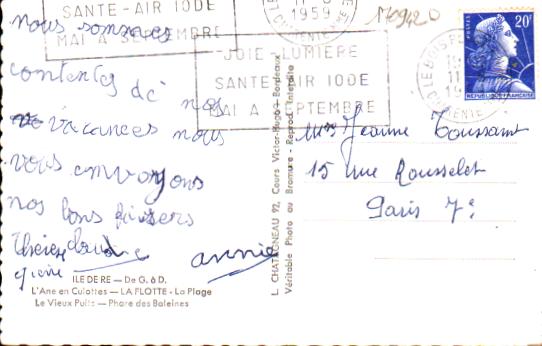 SANTÉ-AIR IODE
MAI A SEPTEMBRE
1959
M0942D
JOIE-LUMIERE
SANTÉ AIR IODE
MAI A SEPTEMBRE
LE BOIS P
CHTE MTIE
POSTES
20F
REPUBLIQUE FRANÇAISE
nous sommes
contentes de
nos
vacances nous
vous envoyons
nos bons baisers
annie
ILE DE RE — De G. à D.
L'Ane en Culottes — LA FLOTTE - La Plage
Le Vieux Puits — Phare des Baleines
L. CHATAGNEAU 92, Cours Victor-Hugo - Bordeaux
Véritable Photo au Bromure - Reprod. Interdite
Jeanne Toussaint
15 rue Rousselet
Paris 7e